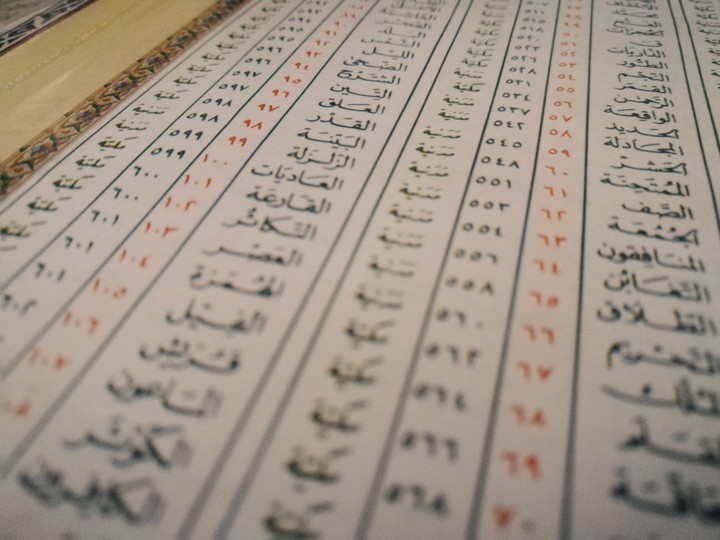 الطور ٥٢ ٥٢٣ مكية
النجم ٥٣ ٥٢٦ مكية
القمر ٥٤ ٥٢٨ مكية
الرحمن ٥٥ ٥٣١ مدنية
الواقعة ٥٦ ٥٣٤ مكية
الحديد ٥٧ ٥٣٧ مدنية
المجادلة ٥٨ ٥٤٢ مدنية
الحشر ٥٩ ٥٤٥ مدنية
الممتحنة ٦٠ ٥٤٨ مدنية
الصف ٦١ ٥٥١ مدنية
الجمعة ٦٢ ٥٥٣ مدنية
المنافقون ٦٣ ٥٥٤ مدنية
التغابن ٦٤ ٥٥٦ مدنية
الطلاق ٦٥ ٥٥٨ مدنية
التحريم ٦٦ ٥٦٠ مدنية
الملك ٦٧ ٥٦٢ مكية
القلم ٦٨ ٥٦٤ مكية
الحاقة ٦٩ ٥٦٦ مكية
٧٠ ٥٦٨ مكية
الليل
الضحى ٩٣ ٥٩٦ مكية
الشرح ٩٤ ٥٩٦ مكية
التين ٩٥ ٥٩٧ مكية
العلق ٩٦ ٥٩٧ مكية
القدر ٩٧ ٥٩٨ مكية
البينة ٩٨ ٥٩٨ مدنية
الزلزلة ٩٩ ٥٩٩ مدنية
العاديات ١٠٠ ٥٩٩ مكية
القارعة ١٠١ ٦٠٠ مكية
التكاثر ١٠٢ ٦٠٠ مكية
العصر ١٠٣ ٦٠١ مكية
الهمزة ١٠٤ ٦٠١
الفيل ١٠٥ ٦٠١
قريش ١٠٦ ٦٠٢
الماعون ١٠٧
الكوثر ١٠٨
الكافرون